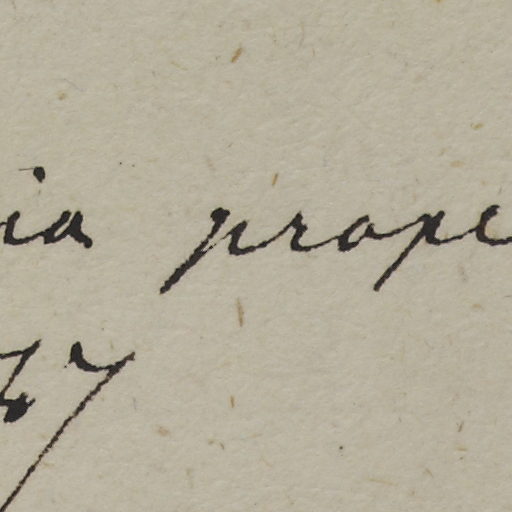 ia prope
67